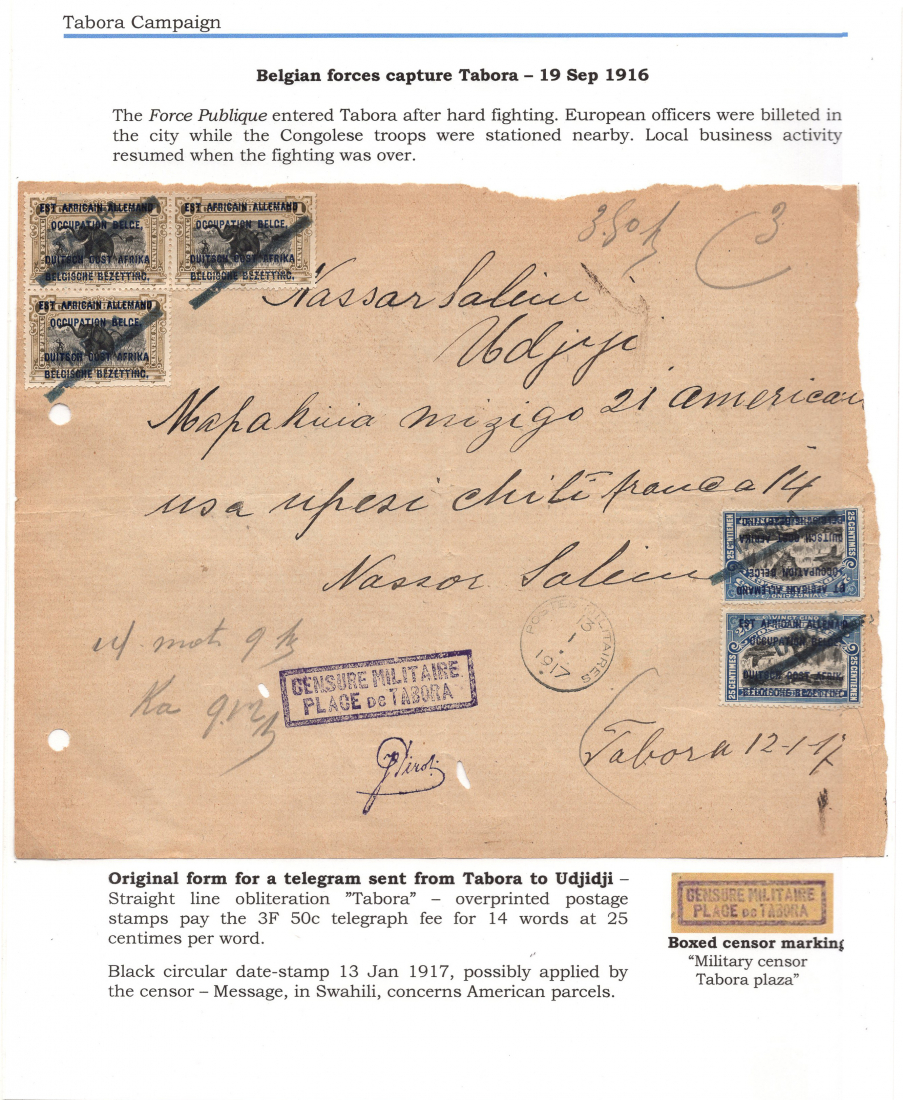 Tabora Campaign
Belgian forces capture Tabora – 19 Sep 1916
The Force Publique entered Tabora after hard fighting. European officers were billeted in
the city while the Congolese troops were stationed nearby. Local business activity
resumed when the fighting was over.
EST AFRICAIN ALLEMAND
OCCUPATION BELGE.
DUITSCH OOST AFRIKA
BELGISCHE BEZETTING.
EST AFRICAIN ALLEMAND
OCCUPATION BELGE.
DUITSCH OOST AFRIKA
BELGISCHE BEZETTING.
EST AFRICAIN ALLEMAND
OCCUPATION BELGE.
DUITSCH OOST AFRIKA
BELGISCHE BEZETTING.
3.50
3
Nassar Salein
Udjiji
Mapakivia mizigo 21 american
usa upesi chiti franca 14
Nassor Salein
25 CENTIEMEN
25 CENTIMES
EST AFRICAIN ALLEMAND
OCCUPATION BELGE.
DUITSCH OOST AFRIKA
BELGISCHE BEZETTING.
25 CENTIMES
25 CENTIEMEN
EST AFRICAIN ALLEMAND
OCCUPATION BELGE.
DUITSCH OOST AFRIKA
BELGISCHE BEZETTING.
POSTES MILITAIRES
13
1
1917
mots
CENSURE MILITAIRE
PLACE DE TABORA
Tabora 12-1-17
Original form for a telegram sent from Tabora to Udjidji –
Straight line obliteration ”Tabora” – overprinted postage
stamps pay the 3F 50c telegraph fee for 14 words at 25
centimes per word.
Black circular date-stamp 13 Jan 1917, possibly applied by
the censor – Message, in Swahili, concerns American parcels.
CENSURE MILITAIRE
PLACE DE TABORA
Boxed censor marking
“Military censor
Tabora plaza”